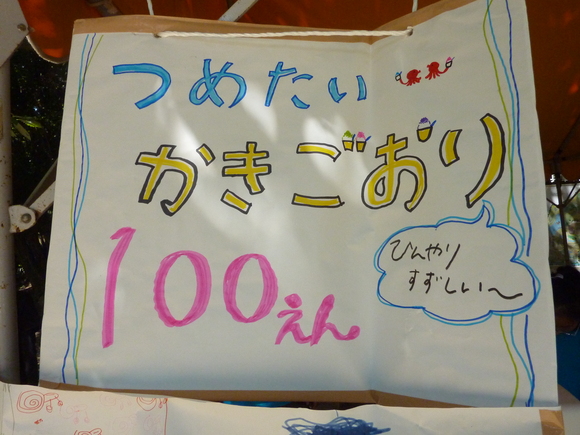 つめたい
かきごおり
100えん
ひんやり
すずしぃ〜